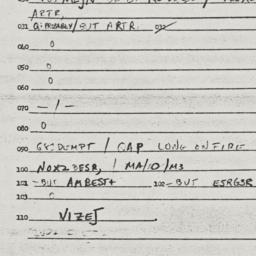 ARTR,
031 Q: PROBABLY/BUT ARTR. 032
040 0
050 0
060 0
070 - / -
080 0
090 / CAP LONG ON FIRE
100 NOX2BESR, / MA/10/M3
101 - BUT AMBEST+ 102 - BUT ESRGSR
103 0
110 VIZEJ